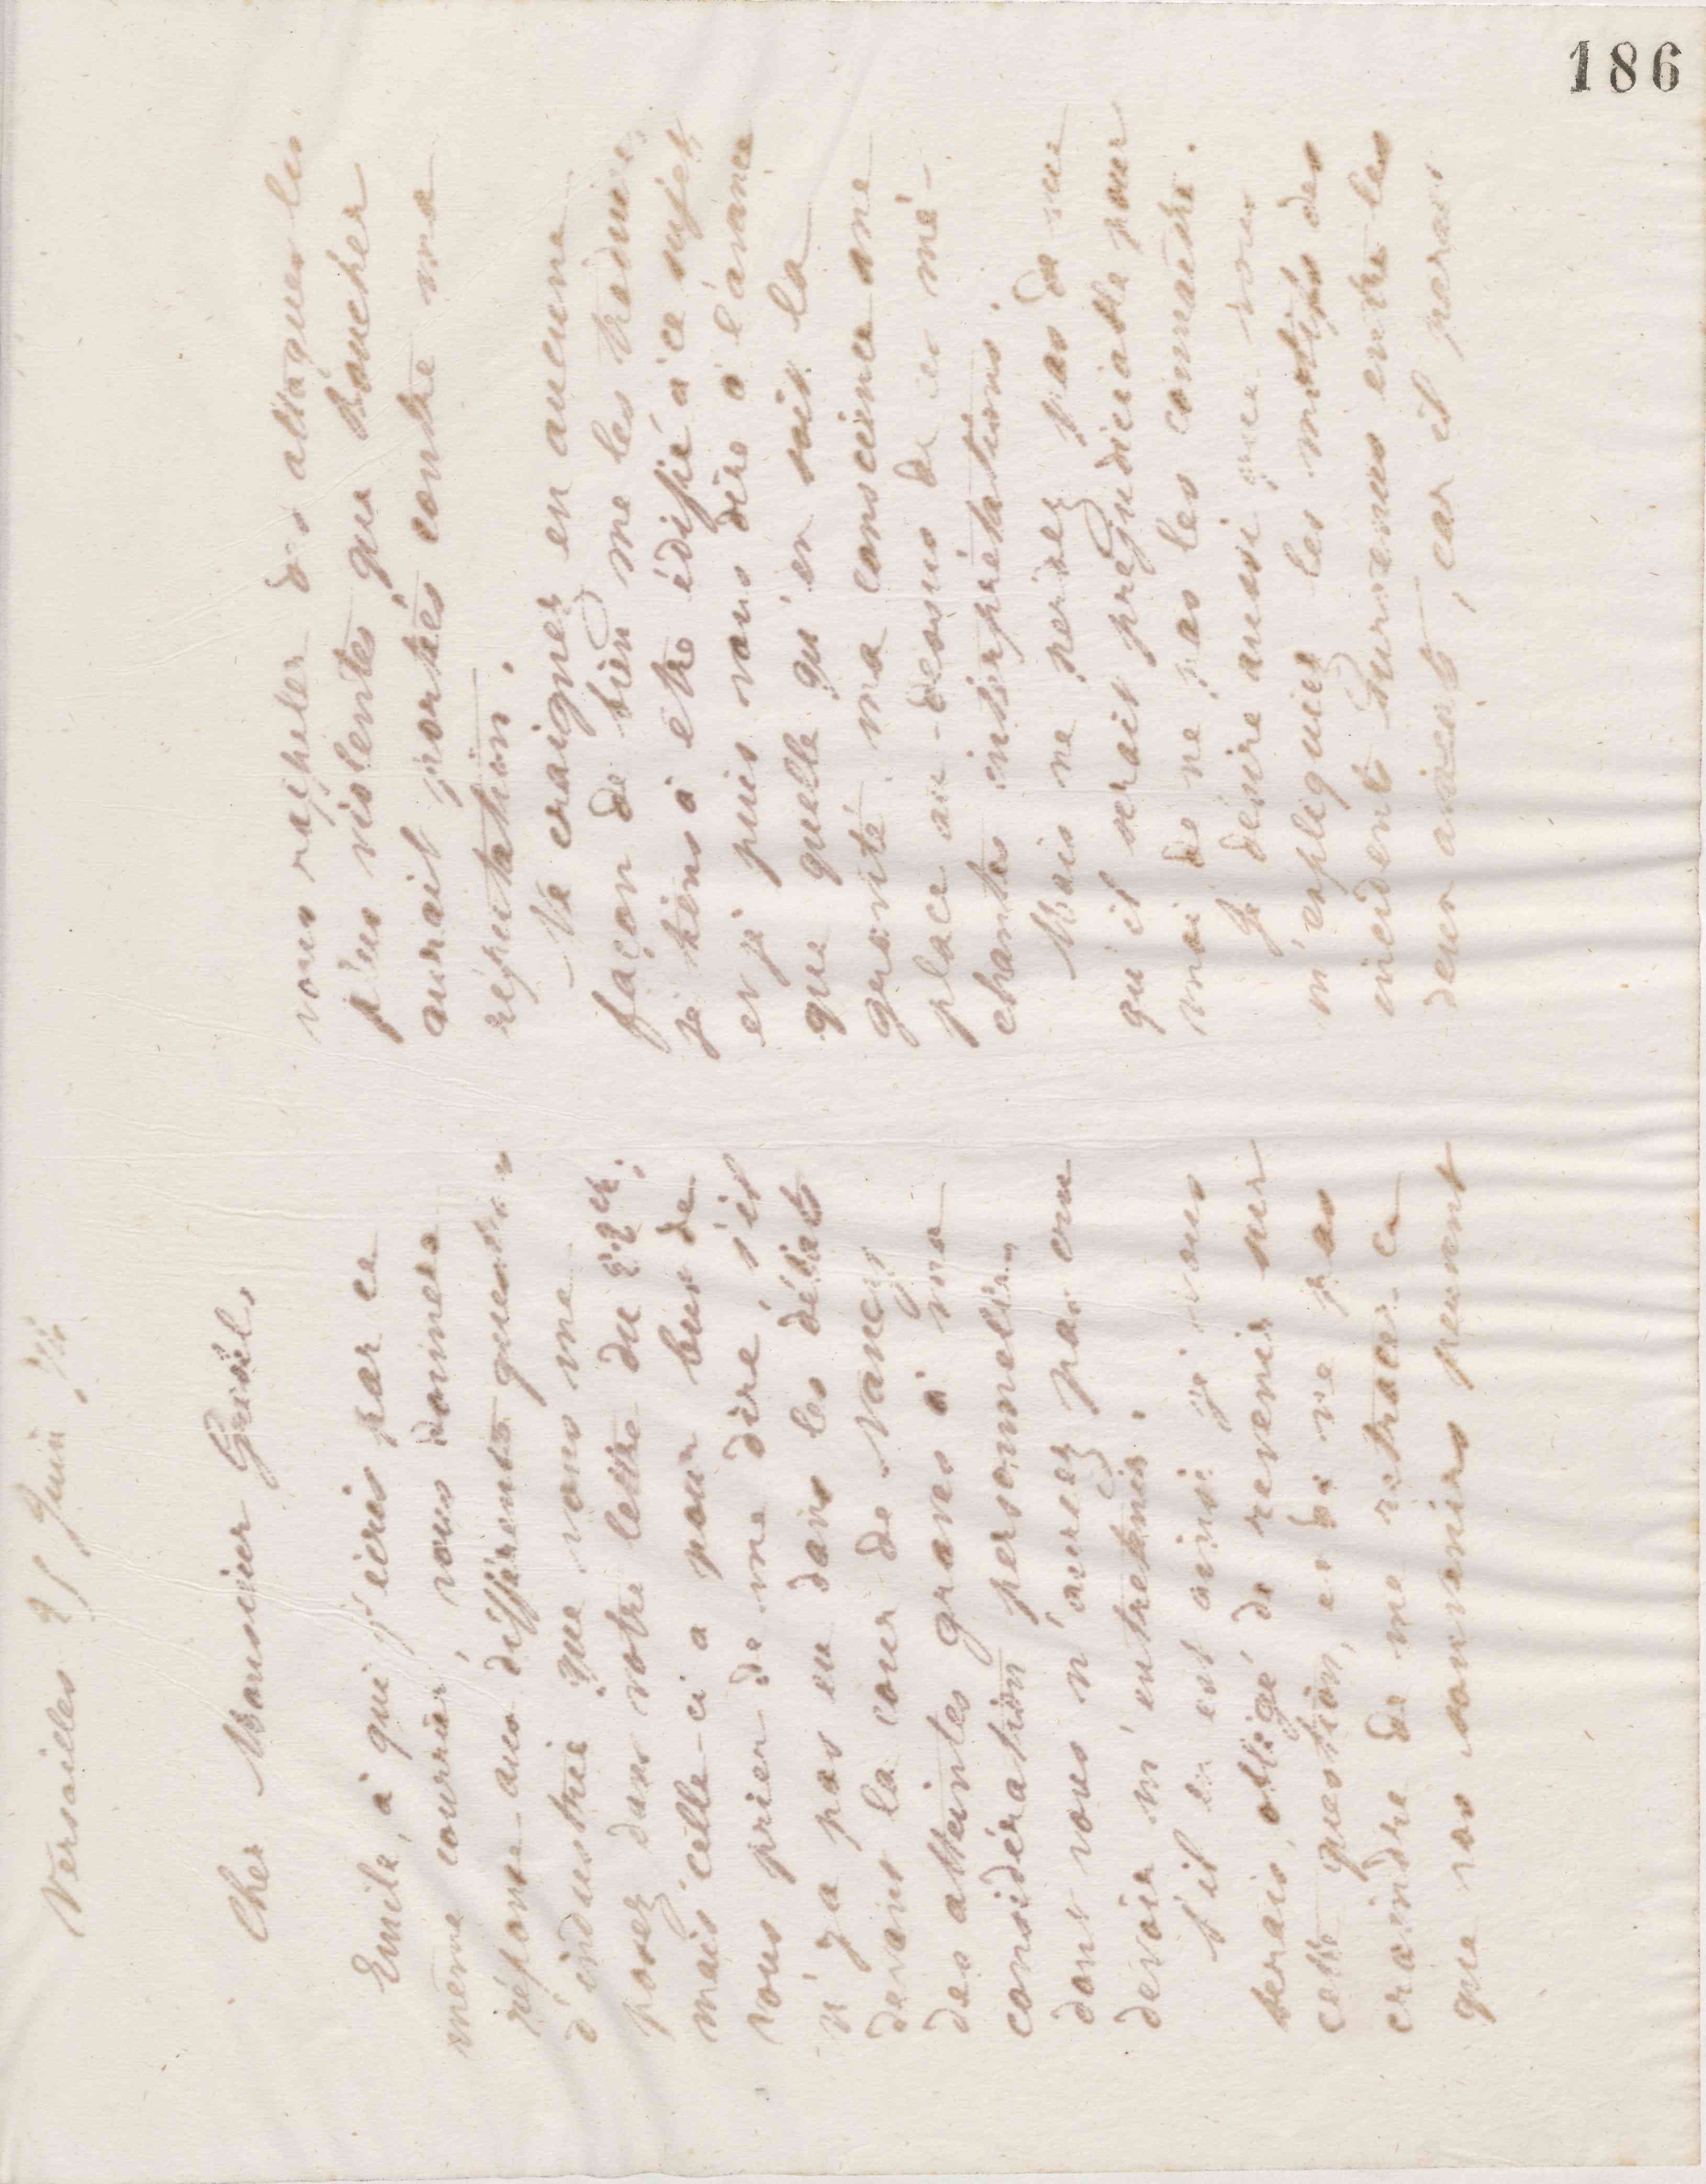 186
Versailles 25 Juin
Cher Monsieur Grisel,
Emile, à qui j'écris par ce
même courrier, vous donnera
réponse aux différentes questions
d'industrie que vous me
posez dans votre lettre du 22 ct;
mais celle-ci a pour but de
vous prier de me dire s'il
n'y a pas eu dans les débats
devant la cour de Nancy
des atteintes graves à ma
considération personnelle
dont vous n'aurez pas cru
devoir m'entretenir.
S'il en est ainsi je vous
serais obligé de revenir sur
cette question, et de ne pas
craindre de me retracer ce
que vos souvenirs peuvent
vous rappeler des attaques les
plus violentes que Boucher
aurait portées contre ma
réputation.
Ne craignez en aucune
façon de bien me les traduire,
je tiens à être édifié à ce sujet
et je puis vous dire à l'avance
que quelle qu'en soit la
gravité ma conscience me
place au-dessus de ces mé-
chantes interprétations.
Mais ne perdez pas de vue
qu'il serait préjudiciable pour
moi de ne pas les connaître.
Je désire aussi que vous
m'expliquiez les motifs des
incidents survenus entre les
deux avocats, car il paraît